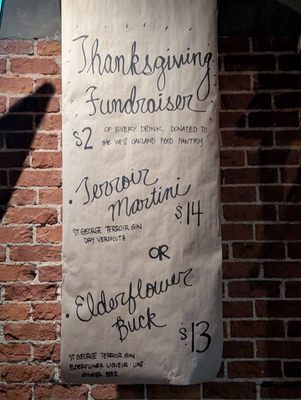 Thanksgiving
Fundraiser
$2 OF EVERY DRINK DONATED TO
THE WEST OAKLAND FOOD PANTRY
• Terroir
Martini
$14
ST GEORGE TERROIR GIN
DRY VERMOUTH
OR
• Elderflower
Buck
$13
ST GEORGE TERROIR GIN
ELDERFLOWER LIQUEUR · LIME
GINGER BEER